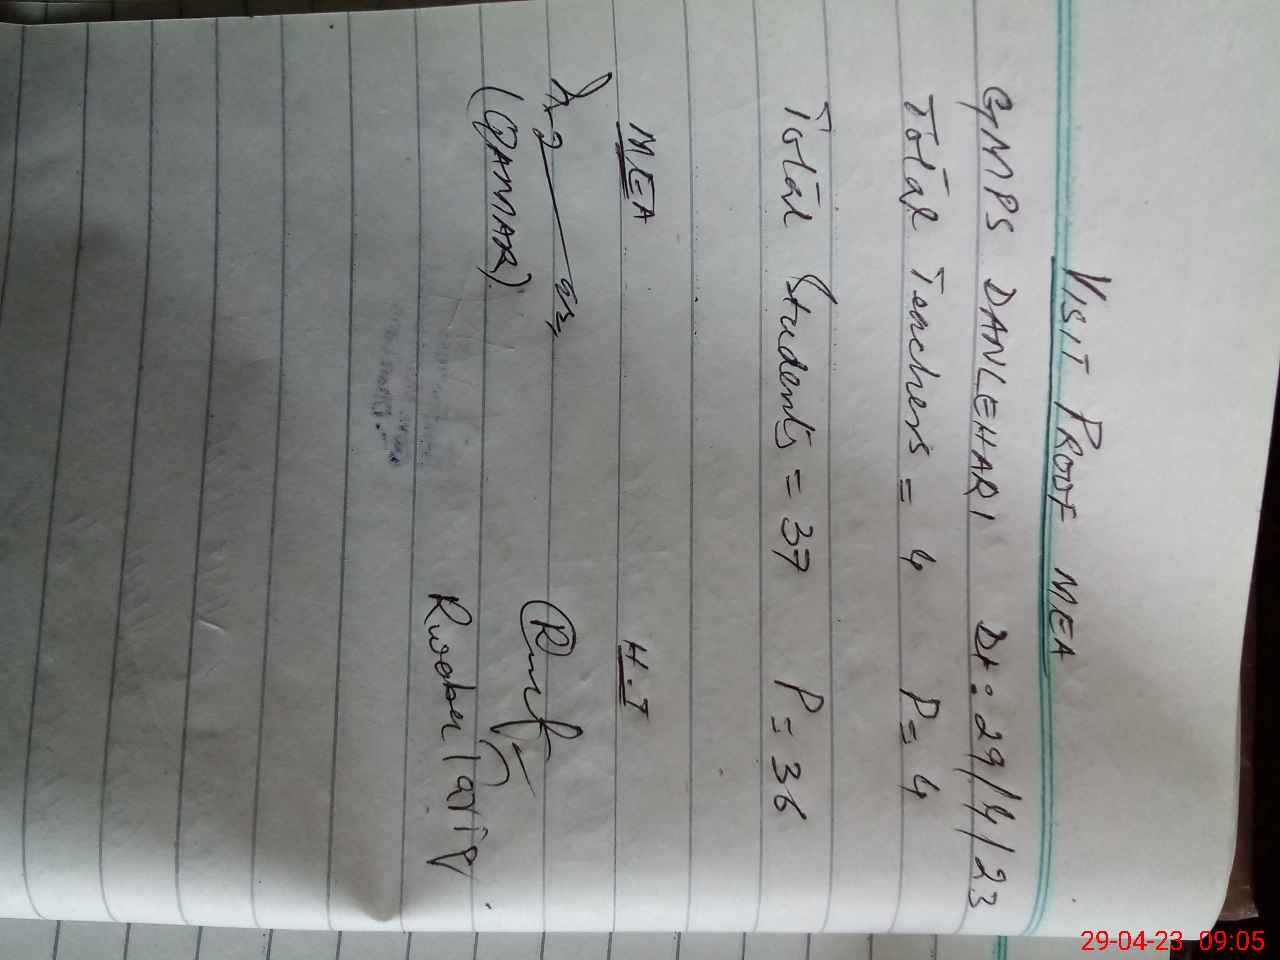 VISIT PROOF MEA
GMPS DANLEHARI Dt: 29/4/23
Total Teachers = 4 P= 4
Total Students = 37 P= 36
MEA H.T
(QAMAR)
Tariq
29-04-23 09:05